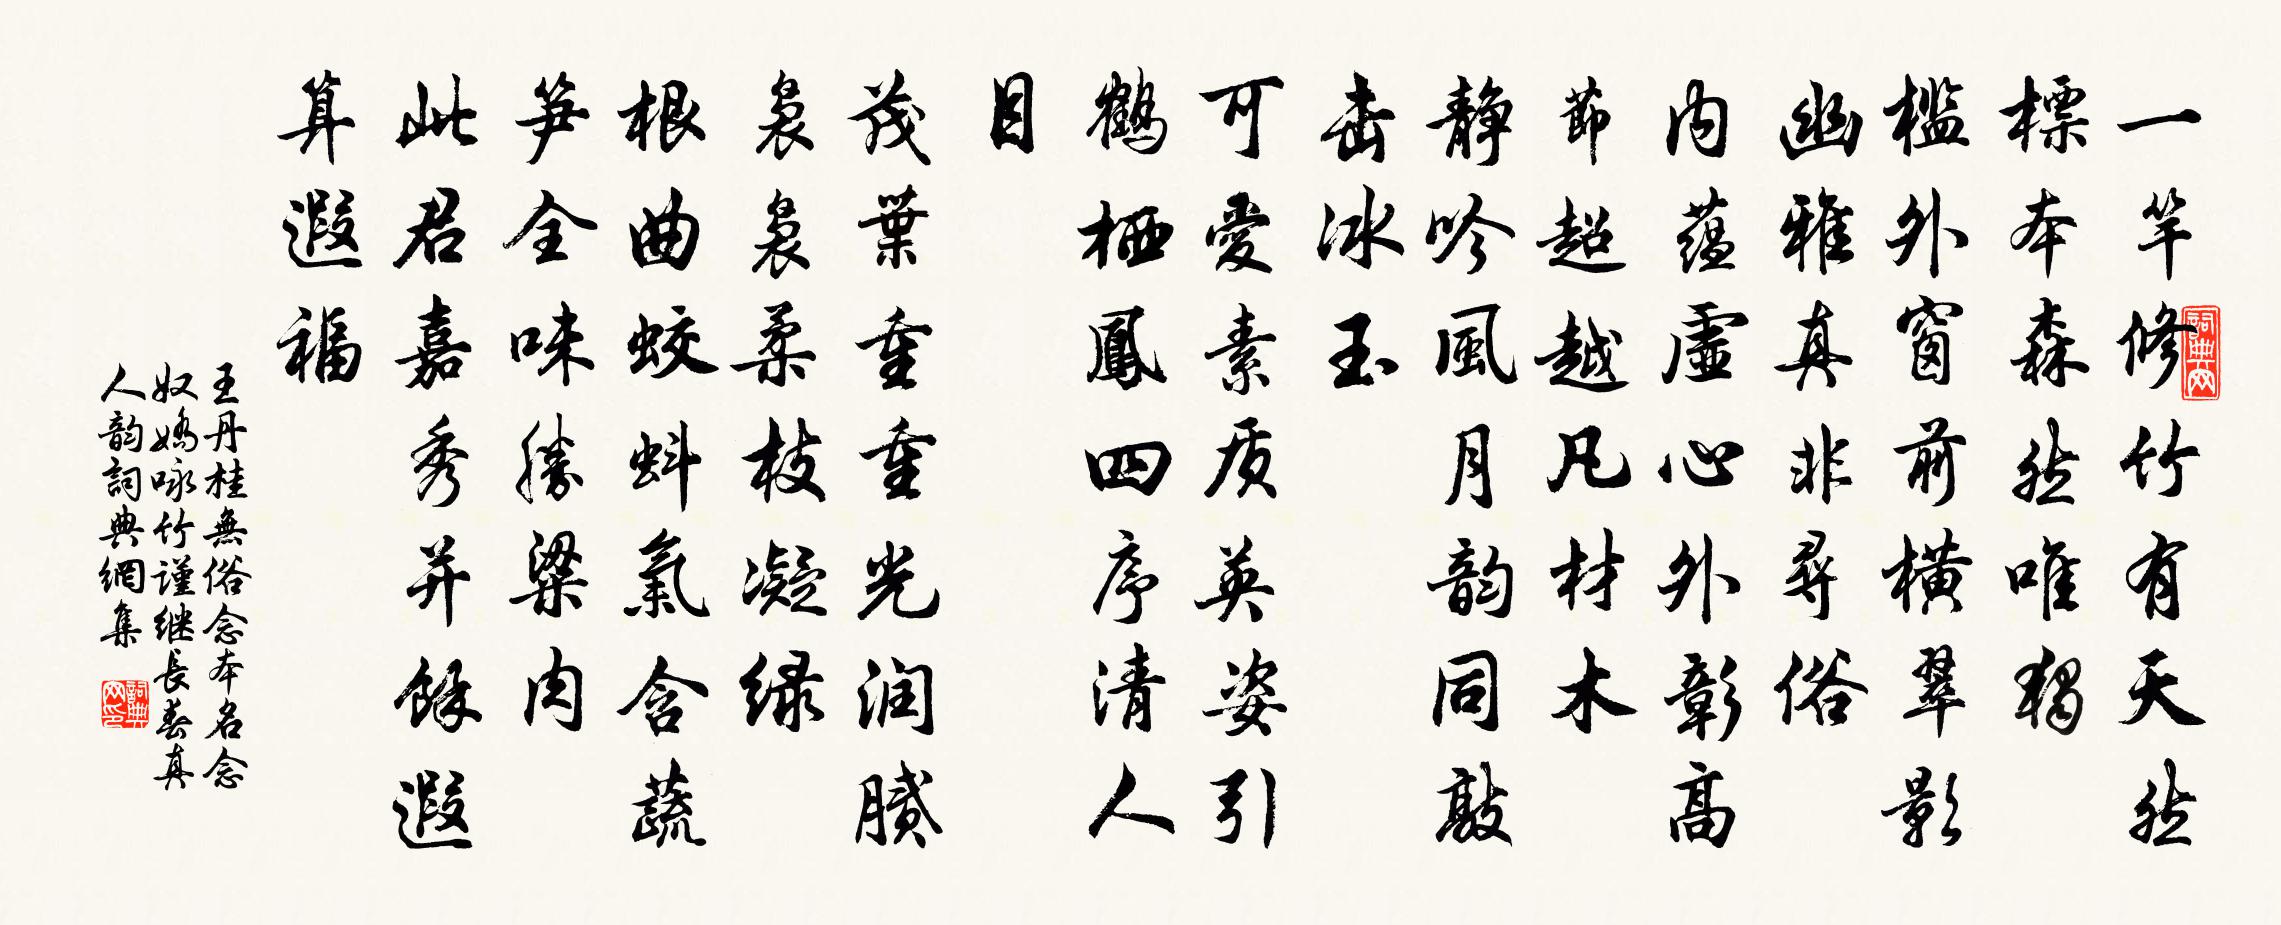 一竿修竹有天然
標本森然唯獨
檻外窗前橫翠影
幽雅真非尋俗
內蘊虛心外彰高
節超越凡材木
靜吟風月韵同敲
击冰玉
可愛素质英姿引
鶴栖鳳四序清人
目
茂葉重重光润膩
裊裊柔枝凝绿
根曲蛟蚪氣含蔬
笋全味勝粱肉
此君嘉秀并餘遐
算遐福
王丹桂無俗念本名念
奴嬌咏竹謹继長春真
人韵詞典網集
詞典网
詞典网印